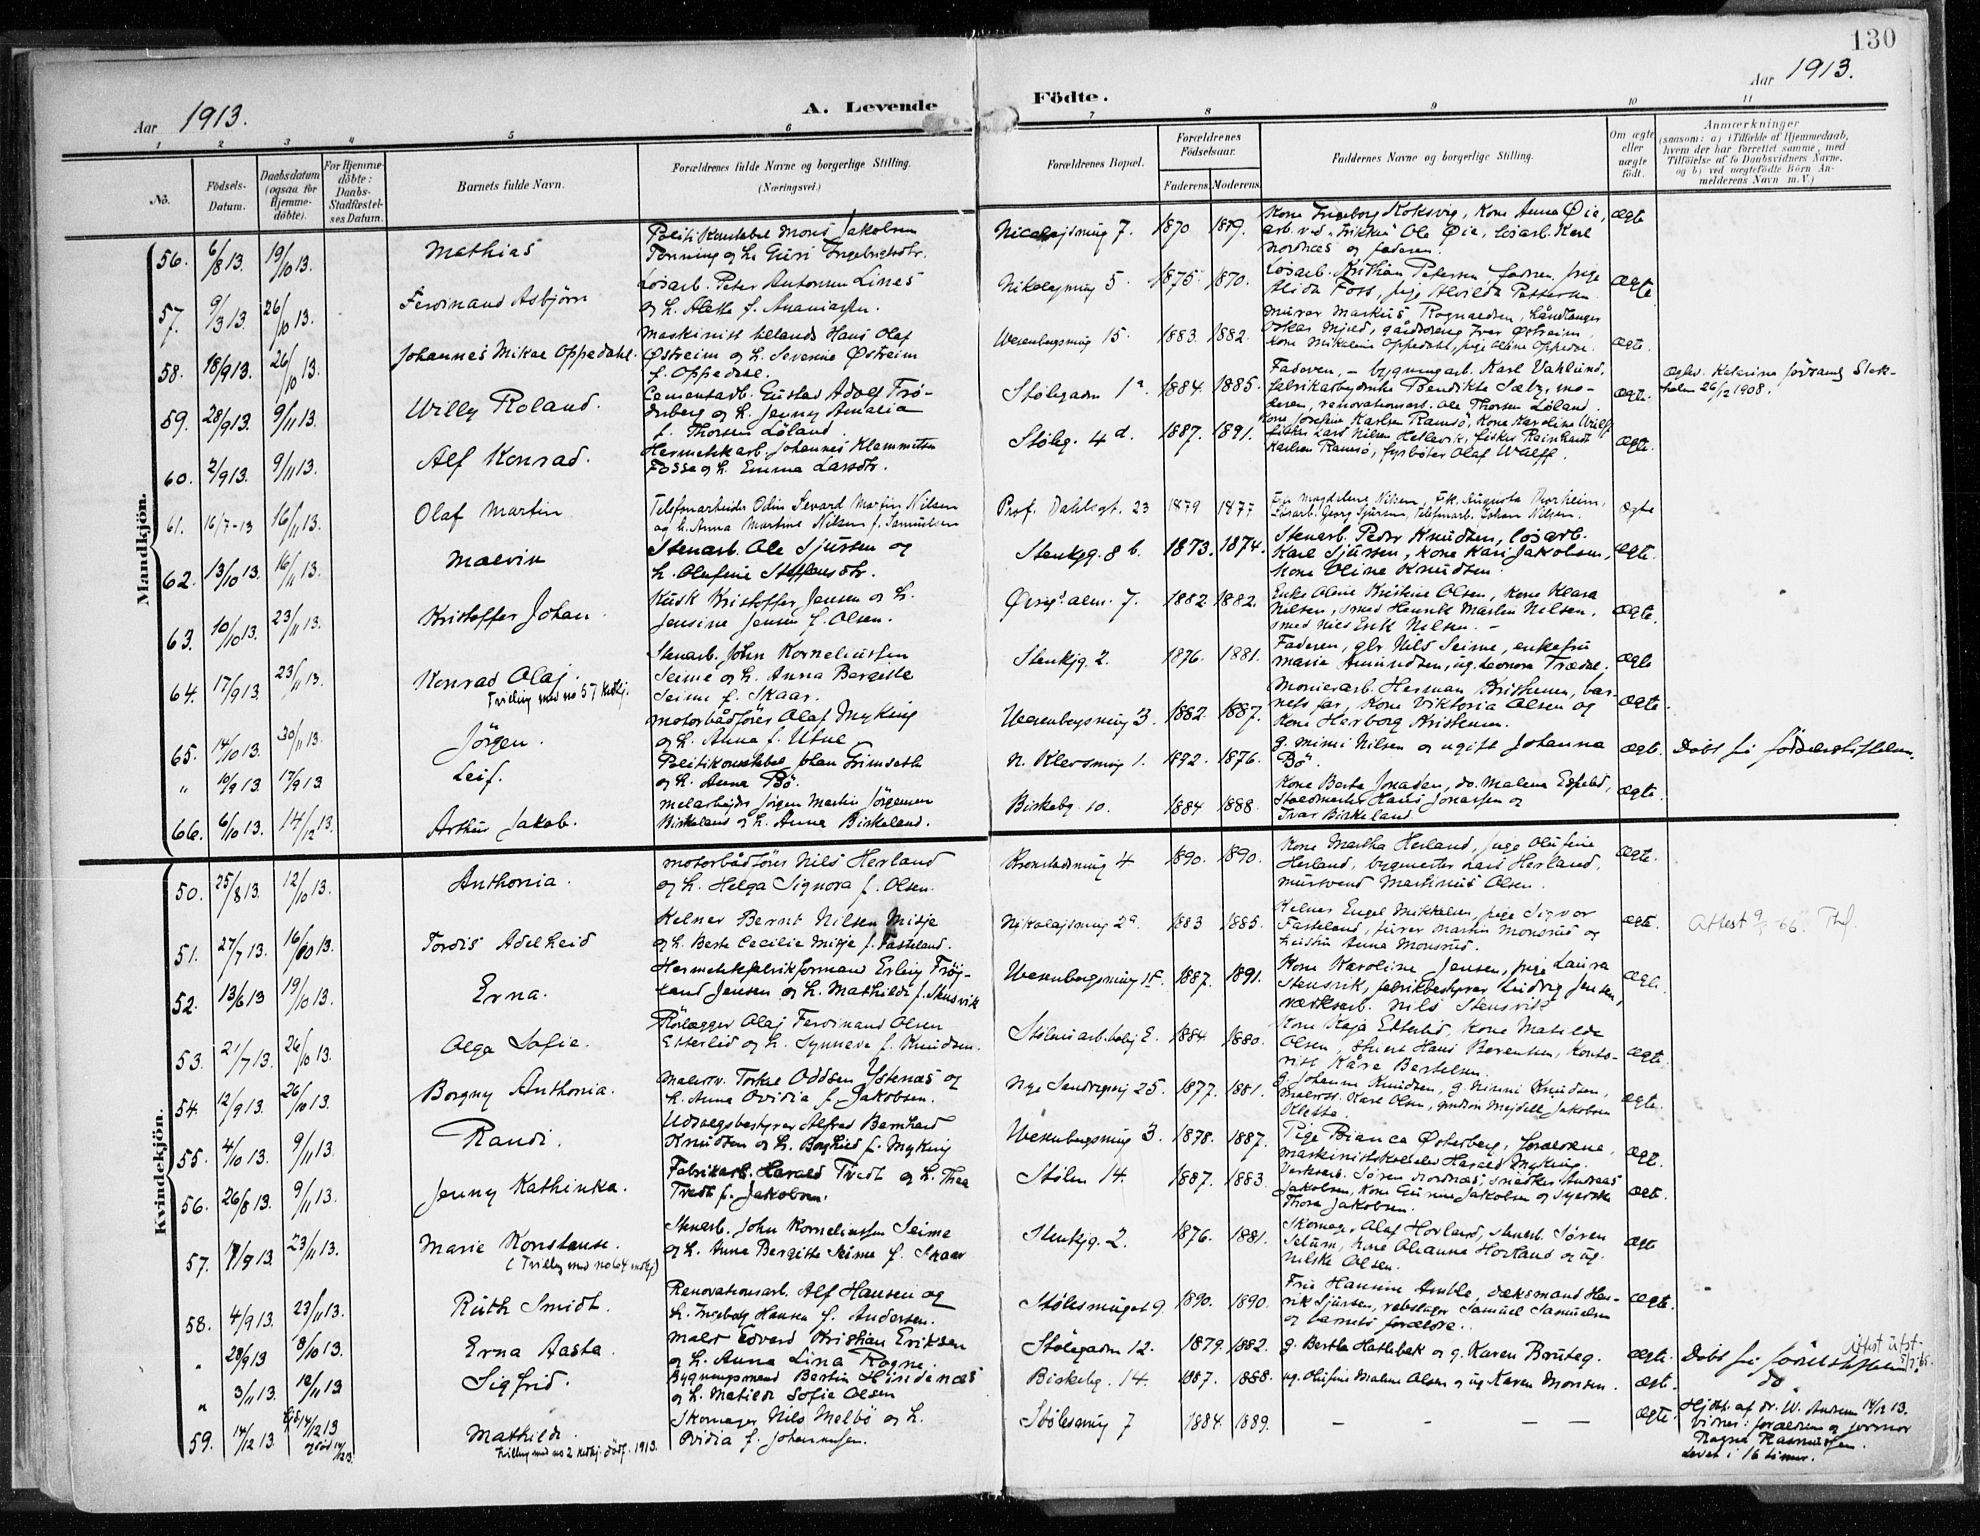 130
Aar 1913.
A. Levende
Födte.
Aar 1913.
1 2 3 4 5 6 7 8 9 10 11
No.
Födsels-
Datum.
Daabsdatum
(ogsaa for
Hjemme-
döbte).
For Hjemme-
döbte:
Daabs-
Stadfæstel-
ses Datum.
Barnets fulde Navn.
Forældrenes fulde Navne og borgerlige Stilling.
(Næringsvei.)
Forældrenes Bopæl.
Forældrenes
Födselsaar.
Faderens. Moderens.
Faddernes Navne og borgerlige Stilling.
Om ægte
eller
uægte
födt.
Anmærkninger
(saasom: a) i Tilfælde af Hjemmedaab,
hvem der har forrettet samme, med
Tilföielse af to Daabsvidners Navne,
og b) ved uægtefödte Börn An-
melderens Navn m. V.)
Mandkjön.
56. 6/8 13. 19/10 13. Mathias
Politikonstabel Mons Jakobsen
Tenning og h. Guri Ingebrigtsdtr.
7. 1870 1879.
Kone Ingeborg Koksvig, Kone Anna Øie,
Ole Øie, løsarb. Karl
Nordnæs og faderen.
ægte
57. 9/3 13. 26/10 13. Ferdinand Asbjørn
Løsarb. Peter Antonsen Linés
og h. Alette f. Ananiassen.
5. 1875 1870.
Løsarb. Kristian Petersen, fadren, pige
Alida Foss, pige Alvilda Pettersen
ægte
58. 18/9 13. 26/10 13. Johannes Mikal Oppedahl.
Maskinist tillands Hans Olaf
Østreim og h. Severine Østreim
f. Oppedal.
Wesenbergsmug 15. 1883. 1882.
Murer Markus Rognaldsen, håndlanger
Oskar Mjeld, gårdsdreng Ivar Østreim,
Kone Mikkeline Oppedahl, pige Oline Oppedal.
ægte.
59. 28/9 13. 9/11 13. Willy Roland.
Cementarb. Gustav Adolf Frö-
derberg og h. Jenny Amalia
f. Thorsen Löland.
Stølegaden 1a. 1884. 1885.
Faderen, - bygningsarb. Karl Vahlund,
fabrikarbeiderske Bendikte Sæby, mo-
deren, renovationsarb. Ole Thorsen Löland.
ægte.
26/12 1908.
60. 2/9 13. 9/11 13. Alf Konrad.
Hermetikarb. Johannes Klemmetsen
Fosse og h. Emma Larsdtr.
Støleg. 4d. 1887. 1891.
Kone Josefine Karlsen Ramsö, Kone Karoline Wulff
fisker Lars Nilsen Hellevik, fisker Reinhardt
Karlsen Ramsö, fyrbøter Olaf Wulff.
ægte.
61. 16/7-13 16/11 13. Olaf Martin
Telefonarbeider Odin Sevard Martin Nilsen
og h. Anna Martine Nilsen f. Samuelsen
Prof. Dahlsgt. 23 1879 1877
Fru Magdelene Nilsen, Frk. Augusta Thorheim,
Løsarb. Georg Sjursen, Telefonarb. Johan Nilsen.
ægte
62. 13/10 13. 16/11 13. Malvin
Stenarb. Ole Sjursen og
h. Olufine Steffensdtr.
Stenkjg. 8b. 1873. 1874.
Stenarb. Peder Knudsen, løsarb.
Karl Sjursen, Kone Kari Jakobsen,
Kone Oline Knudsen.
ægte.
63. 10/10 13. 23/11 13. Kristoffer Johan.
Kusk Kristoffer Jensen og h.
Jensine Jensen f. Olsen.
7. 1882 1882.
Enke Oline Kristine Olsen, Kone Klara
Nilsen, smed Henrik Martin Nilsen,
smed Nils Erik Nilsen. -
ægte.
64. 17/9 13. 23/11 13. Konrad Olaj.
Tvilling med no 57 kvkj.
Stenarb. John Korneliussen
Seime og h. Anna Bergitte
Seime f. Skaar.
Stenkjg. 2. 1876. 1881.
Faderen, glr. Nils Seime, enkefru
Marie Amundsen, ug. Leonora Trædal.
ægte
65. 14/10 13. 30/11 13. Jörgen.
Motorbådförer Olaf Myking
og h. Anna f. Utne
Wesenbergsmug 3. 1882. 1887.
Monterarb. Herman Kristensen, bar-
nets far, Kone Viktoria Olsen og
Kone Herborg Kristensen.
ægte.
" 10/9 13. 17/9 13 Leif.
Politikonstabel Johan Grimseth
og h. Anna Bö.
N. Klevsmug 1. 1892. 1876.
g. Mimi Nilsen og ugift Johanna
Bö.
ægte. Döbt på fødselsstiftelsen.
66. 6/10 13. 14/12 13. Arthur Jakob.
Jörgen Martin Jörgensen
Birkeland og h. Anna Birkeland.
Birkebg. 10. 1884 1888.
Kone Berta Jonassen, do. Malena Espeli,
Hans Jonassen og
Ivar Birkeland.
ægte.
Kvindekjön.
50. 25/8 13. 12/10 13. Anthonia.
Motorbådförer Nils Herland
og h. Helga Signora f. Olsen.
4 1890. 1890.
Kone Martha Herland, pige Olufine
Herland, bygmester Lars Herland,
mursvend Martinus Olsen.
ægte.
51. 27/7 13. 16/10 13. Tordis Adelheid
Kelner Bernt Nilsen Mitje
og h. Berte Cecilie Mitje f. Fasteland.
Nikolajsmug 2a. 1883 1885.
Kelner Engel Mikkelsen, pige Sigvor
Fasteland, furer Martin Monsrud og
Anna Monsrud.
ægte. Attest
52. 13/6 13 19/10 13. Erna.
Hermetikfabrikformand Erling Fröy-
land Jensen og h. Mathilde f. Stensvik
1887. 1891.
Kone Karoline Jensen, pige Laura
Stensvik, fabrikbestyrer Ludvig Jensen,
verksarb. Nils Stensvik
ægte.
53. 21/7 13. 26/10 13. Olga Sofie.
Rörlægger Olaj Ferdinand Olsen
Etterlid og h. Synneva f. Knudsen.
1884 1880.
Kone Kaja Etterlid, Kone Matilde
Olsen, stuert Hans Berentsen, konto-
rist Kåre Bertelsen.
ægte.
54. 12/9 13. 26/10 13. Borgny Anthonia.
Torkel Oddsen Ystenæs og
h. Anna Ovidia f. Jakobsen.
Nye Sandvigsvej 25. 1877. 1881.
g. Johanna Knudsen, g. Mimmi Knudsen,
Karl Olsen, Jakobsen
Klette.
ægte.
55. 4/10 13. 9/11 13. Randi.
Udsalgsbestyrer Alfred Bernhard
Knudsen og h. Borghild f. Myking
Wesenbergsmug 3. 1878. 1887.
Pige Bianca Österberg, forældrene,
maskinistskoleelev Harald Myking.
ægte.
56. 26/8 13. 9/11 13. Jenny Kathinka.
Fabrikarb. Harald Tvedt og h. Thea
Tvedt f. Jakobsen.
Stølen 14. 1887. 1883
Verksarb. Sören Nordnæs, snedker Andreas
Jakobsen, Kone Gurine Jakobsen og
Thora Jakobsen.
ægte.
57. 17/9 13. 23/11 13. Marie Konstanse.
(Tvilling med no 64 mdkj)
Stenarb. John Korneliussen Seime
og h. Anna Bergitte Seime f. Skaar
Stenkjg. 2. 1876. 1881.
Skomag. Olaf Hovland, stenarb. Sören
Kone Olianna Hovland og ug.
Nilske Olsen.
ægte
58. 4/9 13. 23/11 13. Ruth Smidt.
Renovationsarb. Alf Hansen og
h. Ingeborg Hansen f. Andersen.
Stølesmuget 9 1890. 1890.
Fru Hansine Amble, dæksmand Hen-
rik Sjursen, rebslager Samuel Samuelsen
og barnets forældre.
ægte.
" 28/9 13 8/10 13. Erna Aasta.
Maler Edvard Kristian Eriksen
og h. Anna Lina Rogne.
Stølegaden 12. 1879. 1882.
g. Bertha Hatlebak og g. Karen Bruteg.
ægte. Döbt på fødselsstiftelsen
Attest utst.
" 3/11 13. 12/11 13 Sigfrid.
Bygningsmand Bertin Hindenæs
og h. Matilde Sofie Olsen
Birkebg. 14. 1887. 1888.
ug. Olufine Malene Olsen og ug Karen Monsen.
ægte. do
59. 14/12 13. Hjd 14/12 13 Mathilde.
Tvilling med no 2 kvkj. dödf. 1913.
Skomager Nils Melbö og h.
Ovidia f. Johannessen.
Stølesmug 7 1884. 1889.
- - - - -
ægte. Hjdbt. af dr. W. 14/12 13.
Vidner: forældrene og jormor
Ragna Rasmussen.
Levet i 16 timer.